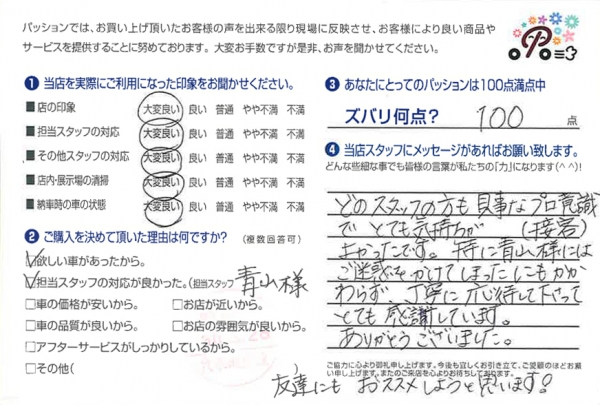 パッションでは、お買い上げ頂いたお客様の声を出来る限り現場に反映させ、お客様により良い商品や
サービスを提供することに努めております。大変お手数ですが是非、お声を聞かせてください。
❶ 当店を実際にご利用になった印象をお聞かせください。
■ 店の印象 大変良い 良い 普通 やや不満 不満
■ 担当スタッフの対応 大変良い 良い 普通 やや不満 不満
■ その他スタッフの対応 大変良い 良い 普通 やや不満 不満
■ 店内・展示場の清掃 大変良い 良い 普通 やや不満 不満
■ 納車時の車の状態 大変良い 良い 普通 やや不満 不満
❷ ご購入を決めて頂いた理由は何ですか? (複数回答可)
☑欲しい車があったから。
☑担当スタッフの対応が良かった。(担当スタッフ 青山様
□車の価格が安いから。 □お店が近いから。
□車の品質が良いから。 □お店の雰囲気が良いから。
□アフターサービスがしっかりしているから。
□その他(
❸ あなたにとってのパッションは100点満点中
ズバリ何点? 100 点
❹ 当店スタッフにメッセージがあればお願い致します。
どんな些細な事でも皆様の言葉が私たちの「力」になります(^^)!
どのスタッフの方も見事なプロ意識
で とても気持ちが (接客)
よかったです。特に青山様には
ご迷惑をかけてしまったにもかか
わらず、丁寧に応待して下さって
とても感謝しています。
ありがとうございました。
ご協力に心より御礼申し上げます。今後も宜しくお引き立て、ご愛顧のほどお願
い申し上げます。またのご来店を心よりお待ちしております。
友達にも おススメしようと思います!